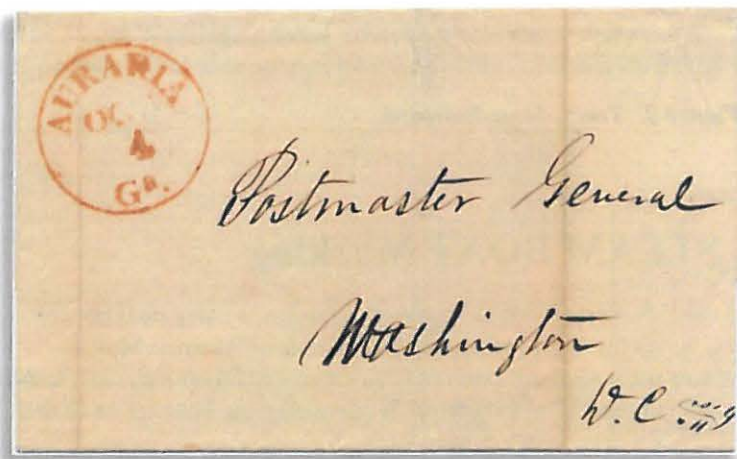 AURARIA
OC
4
Ga.
Postmaster General
Washington
D.C.